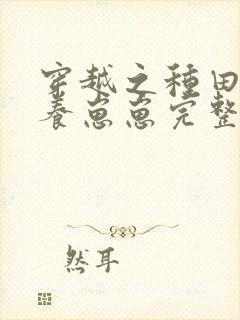 穿越之種田
養崽崽完整
然耳